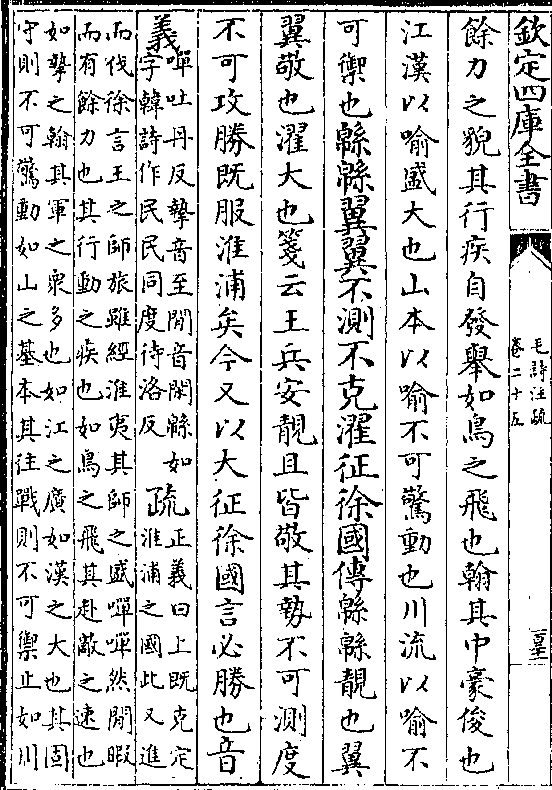 欽定四庫全書
毛詩注疏
卷二十五
餘力之貌其行疾自發舉如鳥之飛也翰其中豪俊也
江漢以喻盛大也山本以喻不可驚動也川流以喻不
可禦也緜緜翼翼不測不克濯征徐國傳緜緜靚也翼
翼敬也濯大也箋云王兵安靚且皆敬其勢不可測度
不可攻勝既服淮浦矣今又以大征徐國言必勝也音
義嘽吐丹反摯音至閒音閑緜如
字韓詩作民民同度待洛反
疏正義曰上既克定
淮浦之國此又進
而伐徐言王之師旅雖經淮夷其師之盛嘽嘽然閒暇
而有餘力也其行動之疾也如鳥之飛其赴敵之速也
如摯之翰其軍之衆多也如江之廣如漢之大也其固
守則不可驚動如山之基本其往戰則不可禦止如川